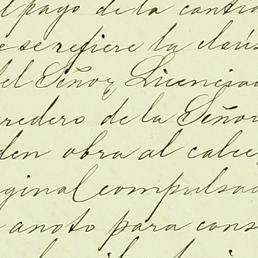 l pago de la contri
e se refiere la claús
del Señor Licencia
redero de la Señor
den obra al calce
iginal compulsa
anoto para cons